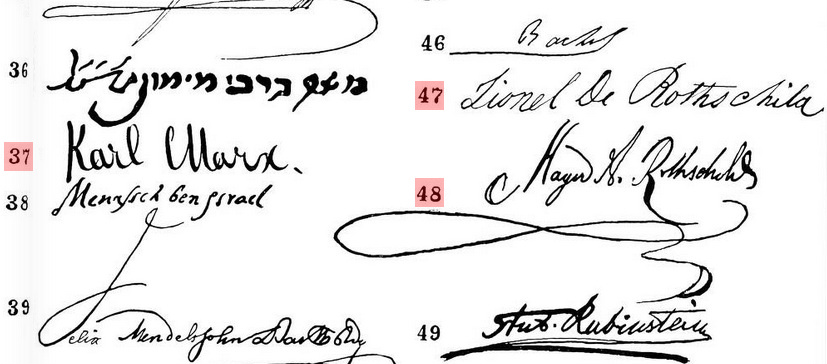 36
משה ברבי מימון
37 Karl Marx.
38 Menasseh ben Israel
39 Felix Mendelssohn Bartholdy
46
47 Lionel De Rothschild
48 Mayer A. Rothschild
49 Ant. Rubinstein